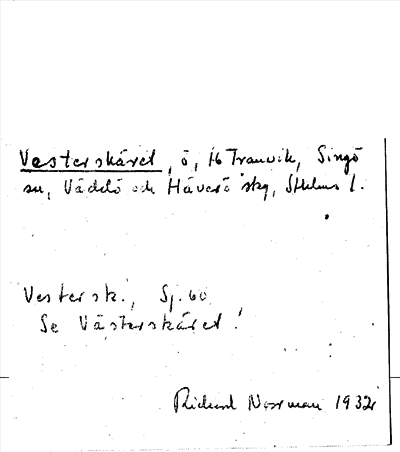 Vesterskäret, ö, Hb Tranvik, Singö
sn, Väddö och Häverö skg, Sthlms l.
Vestersk., Sj. 60
Se Västerskäret!
Rickard Norrman 1932